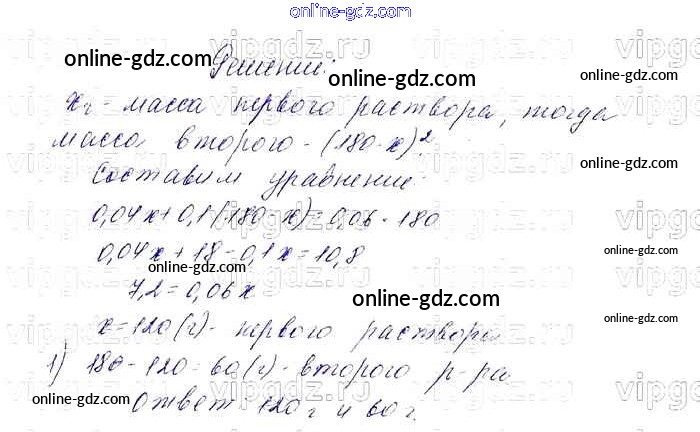 online-gdz.com
Решение:
x г - масса первого раствора, тогда
масса второго - (180-x) г
Составим уравнение:
0,04x+0,1(180-x)=0,06·180
0,04x+18-0,1x=10,8
7,2=0,06x
x=120(г)- первого раствора
1) 180-120=60(г)- второго р-ра
Ответ: 120 г и 60 г.
online-gdz.com
online-gdz.com
online-gdz.com
online-gdz.com
online-gdz.com
online-gdz.com
online-gdz.com
vipgdz.ru